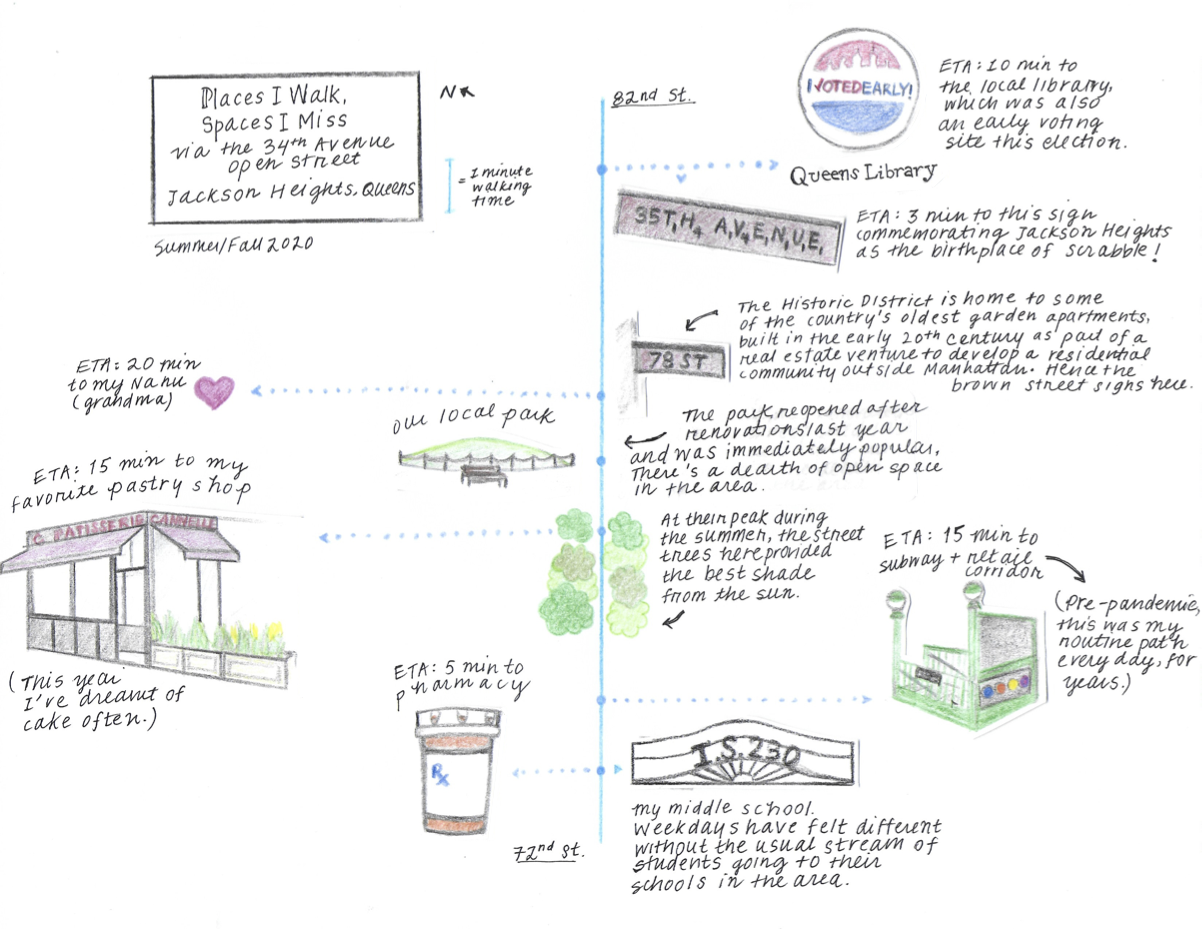 Places I Walk,
Spaces I Miss
via the 34th Avenue
open street
Jackson Heights, Queens
Summer/Fall 2020
N
= 1 minute
walking
time
82nd St.
I VOTED EARLY!
ETA: 10 min to
the local library,
which was also
an early voting
site this election.
Queens Library
35T,H4 A,V4E,N,U,E,
ETA: 3 min to this sign
commemorating Jackson Heights
as the birthplace of scrabble!
The Historic District is home to some
of the country's oldest garden apartments,
built in the early 20th century as part of a
real estate venture to develop a residential
community outside Manhattan. Hence the
brown street signs here.
78 ST
ETA: 20 min
to my Nanu
(grandma)
our local park
The park reopened after
renovations last year
and was immediately popular,
There's a dearth of open space
in the area.
ETA: 15 min to my
favorite pastry shop
PATISSERIE CANNELLE
(This year
I've dreamt of
cake often.)
At their peak during
the summer, the street
trees here provided
the best shade
from the sun.
ETA: 15 min to
subway + retail
corridor
(Pre-pandemic,
this was my
routine path
every day, for
years.)
ETA: 5 min to
pharmacy
Rx
I.S.230
my middle school.
Weekdays have felt different
without the usual stream of
students going to their
schools in the area.
72nd St.